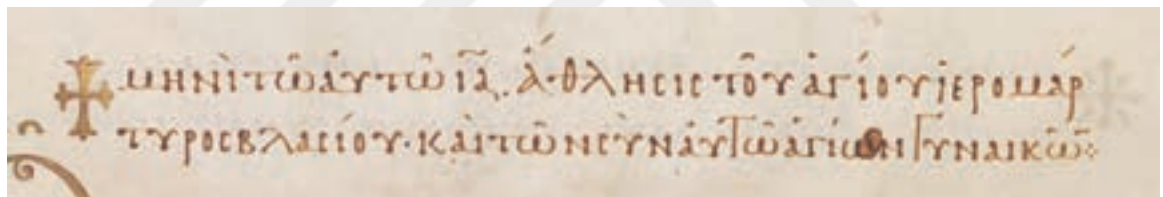 ✝ μηνὶ τῶ ἀυτῶ ια̅. ἄθλησις τοῦ ἁγίου ἱερομάρ
τυρος βλασίου· καὶ τῶν σὺν ἀυτῶ ἁγίων γυναικῶ̅⁘